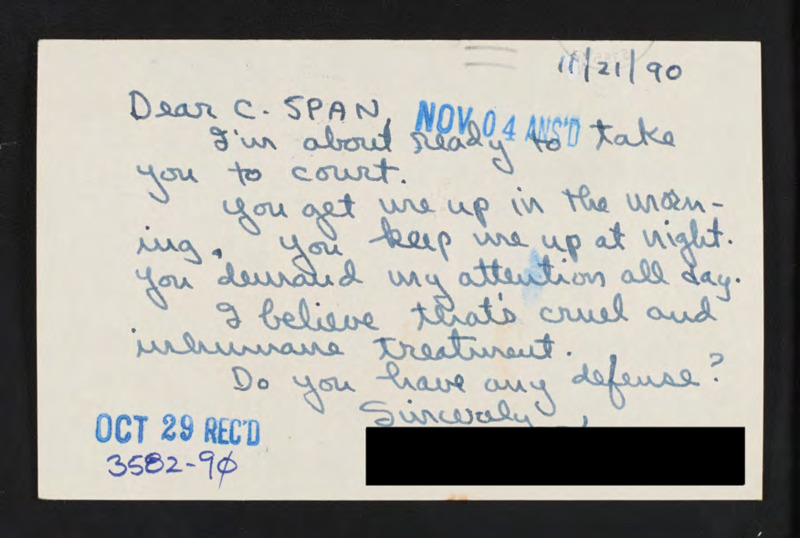 11/21/90
Dear C-SPAN,
NOV 04 ANS'D
I'm about ready to take
you to court.
You get me up in the morn-
ing, you keep me up at night.
You demand my attention all day.
I believe that's cruel and
inhumane treatment.
Do you have any defense?
Sincerely,
OCT 29 REC'D
3582-90